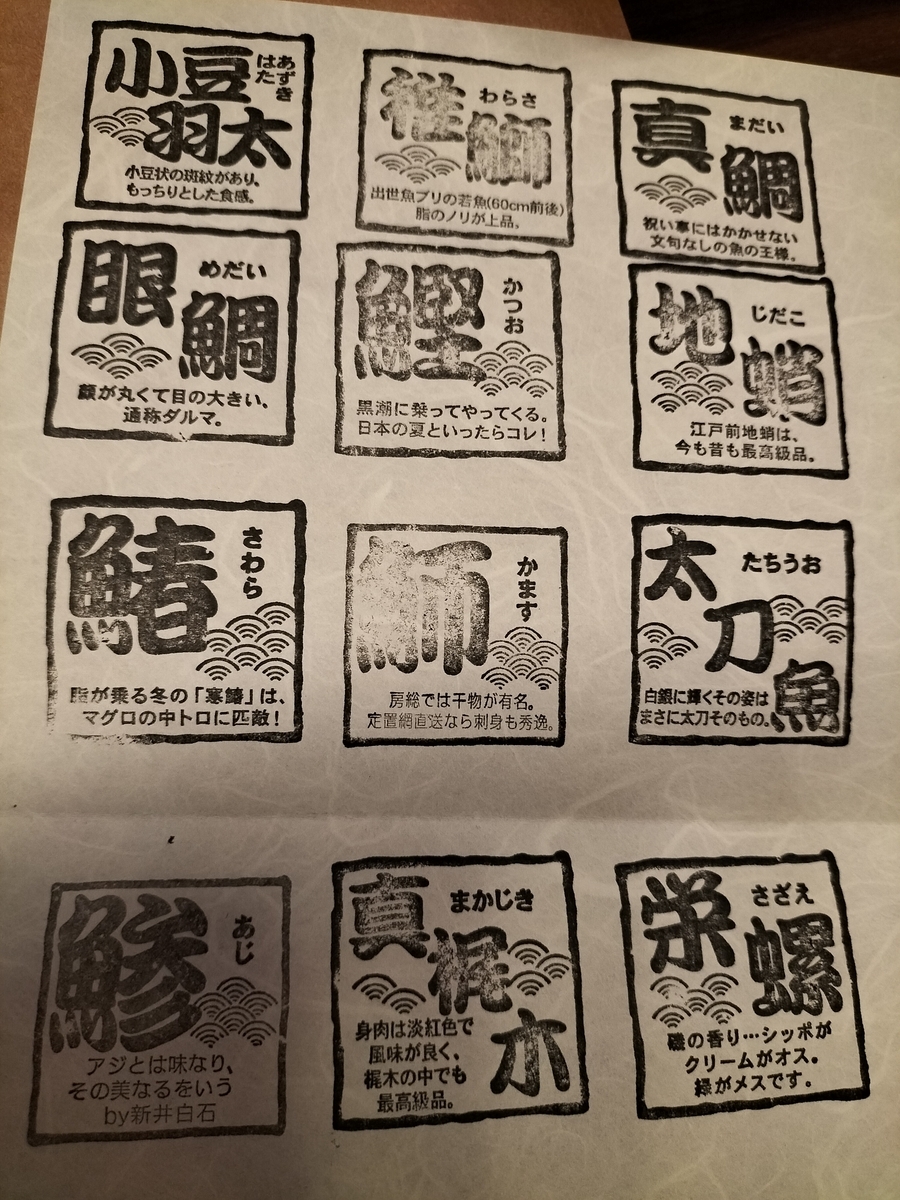 小豆
あずき
はた
羽太
小豆状の斑紋があり、
もっちりとした食感。
稚
わらさ
鰤
出世魚ブリの若魚(60cm前後)
脂のノリが上品。
真
まだい
鯛
祝い事にはかかせない
文句なしの魚の王様。
眼
めだい
鯛
顔が丸くて目の大きい、
通称ダルマ。
鰹
かつお
黒潮に乗ってやってくる。
日本の夏といったらコレ！
地
じだこ
蛸
江戸前地蛸は、
今も昔も最高級品。
鰆
さわら
脂が乗る冬の「寒鰆」は、
マグロの中トロに匹敵！
魳
かます
房総では干物が有名。
定置網直送なら刺身も秀逸。
太
たちうお
刀
魚
白銀に輝くその姿は
まさに太刀そのもの。
鯵
あじ
アジとは味なり、
その美なるをいう
by新井白石
真
まかじき
梶
木
身肉は淡紅色で
風味が良く、
梶木の中でも
最高級品。
栄
さざえ
螺
磯の香り…シッポが
クリームがオス。
緑がメスです。